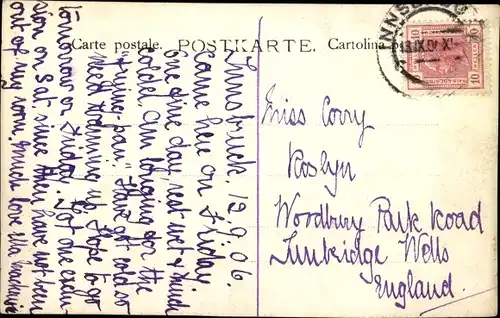 Carte postale. POSTKARTE. Cartolina
Innsbruck 12.9.06.
Came here on Friday.
One fine day, rest wet & much
colder. Am longing for the
"frying-pan". Have got cold so
need warming up. Hope to go
tomorrow or Friday. Not one excur-
sion on Sat. since then have not been
out of my room. Much love
Miss Corry
Roslyn
Woodbury Park Road
Tunbridge Wells
England.
10 10